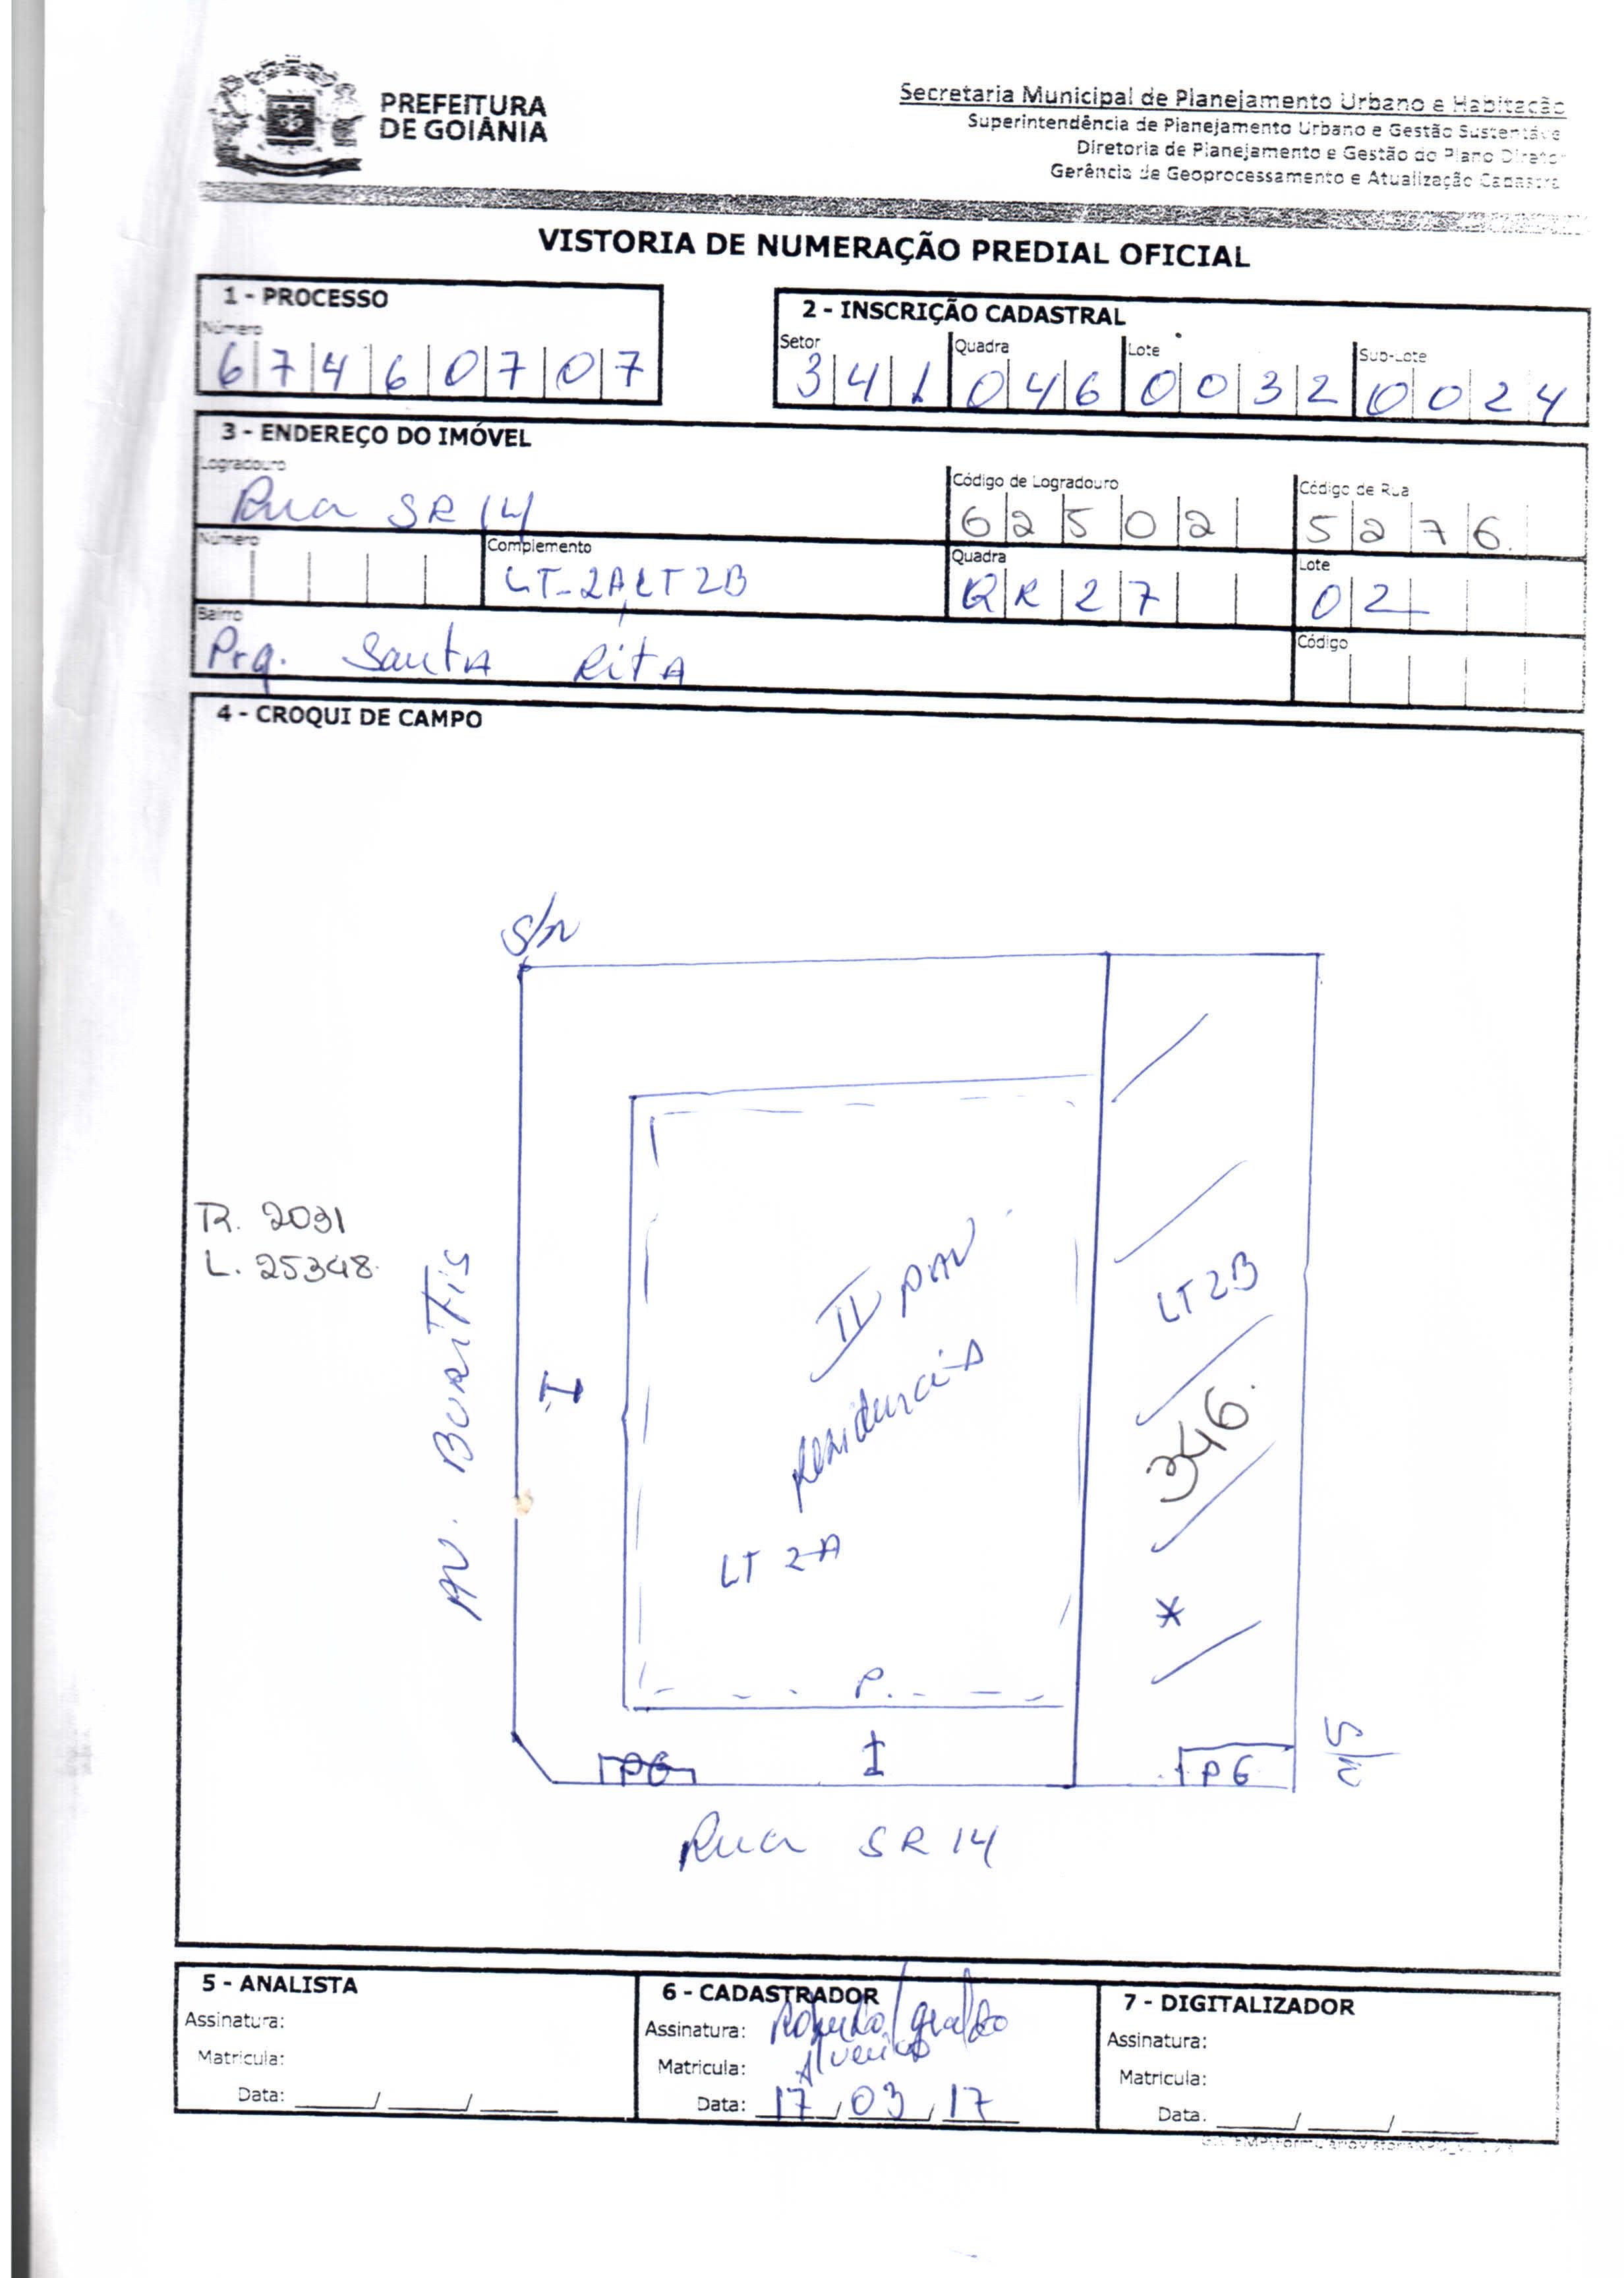 PREFEITURA
DE GOIÂNIA
Secretaria Municipal de Planejamento Urbano e Habitação
Superintendência de Planejamento Urbano e Gestão Sustentáve
Diretoria de Planejamento e Gestão do Plano Diretor
Gerência de Geoprocessamento e Atualização Cadastra
VISTORIA DE NUMERAÇÃO PREDIAL OFICIAL
1 - PROCESSO
Número
6 7 4 6 0 7 0 7
2 - INSCRIÇÃO CADASTRAL
Setor Quadra Lote Sub-Lote
3 4 1 0 4 6 0 0 3 2 0 0 2 4
3 - ENDEREÇO DO IMÓVEL
Logradouro Código de Logradouro Código de Rua
Rua SR 14 6 2 5 0 2 5 2 7 6.
Número Complemento Quadra Lote
LT-2A, LT 2B QR 2 7 0 2
Bairro Código
Prq. Santa Rita
4 - CROQUI DE CAMPO
S/N
R. 2031
L. 25348.
Av. Buritis
I
II pav
Residencia
LT 2A
LT 2B
346.
*
P.
I
PG
PG
S/N
Rua SR 14
5 - ANALISTA
Assinatura:
Matricula:
Data: ____/____/____
6 - CADASTRADOR
Assinatura:
Matricula:
Data: 17/03/17
7 - DIGITALIZADOR
Assinatura:
Matricula:
Data. ____/____/____